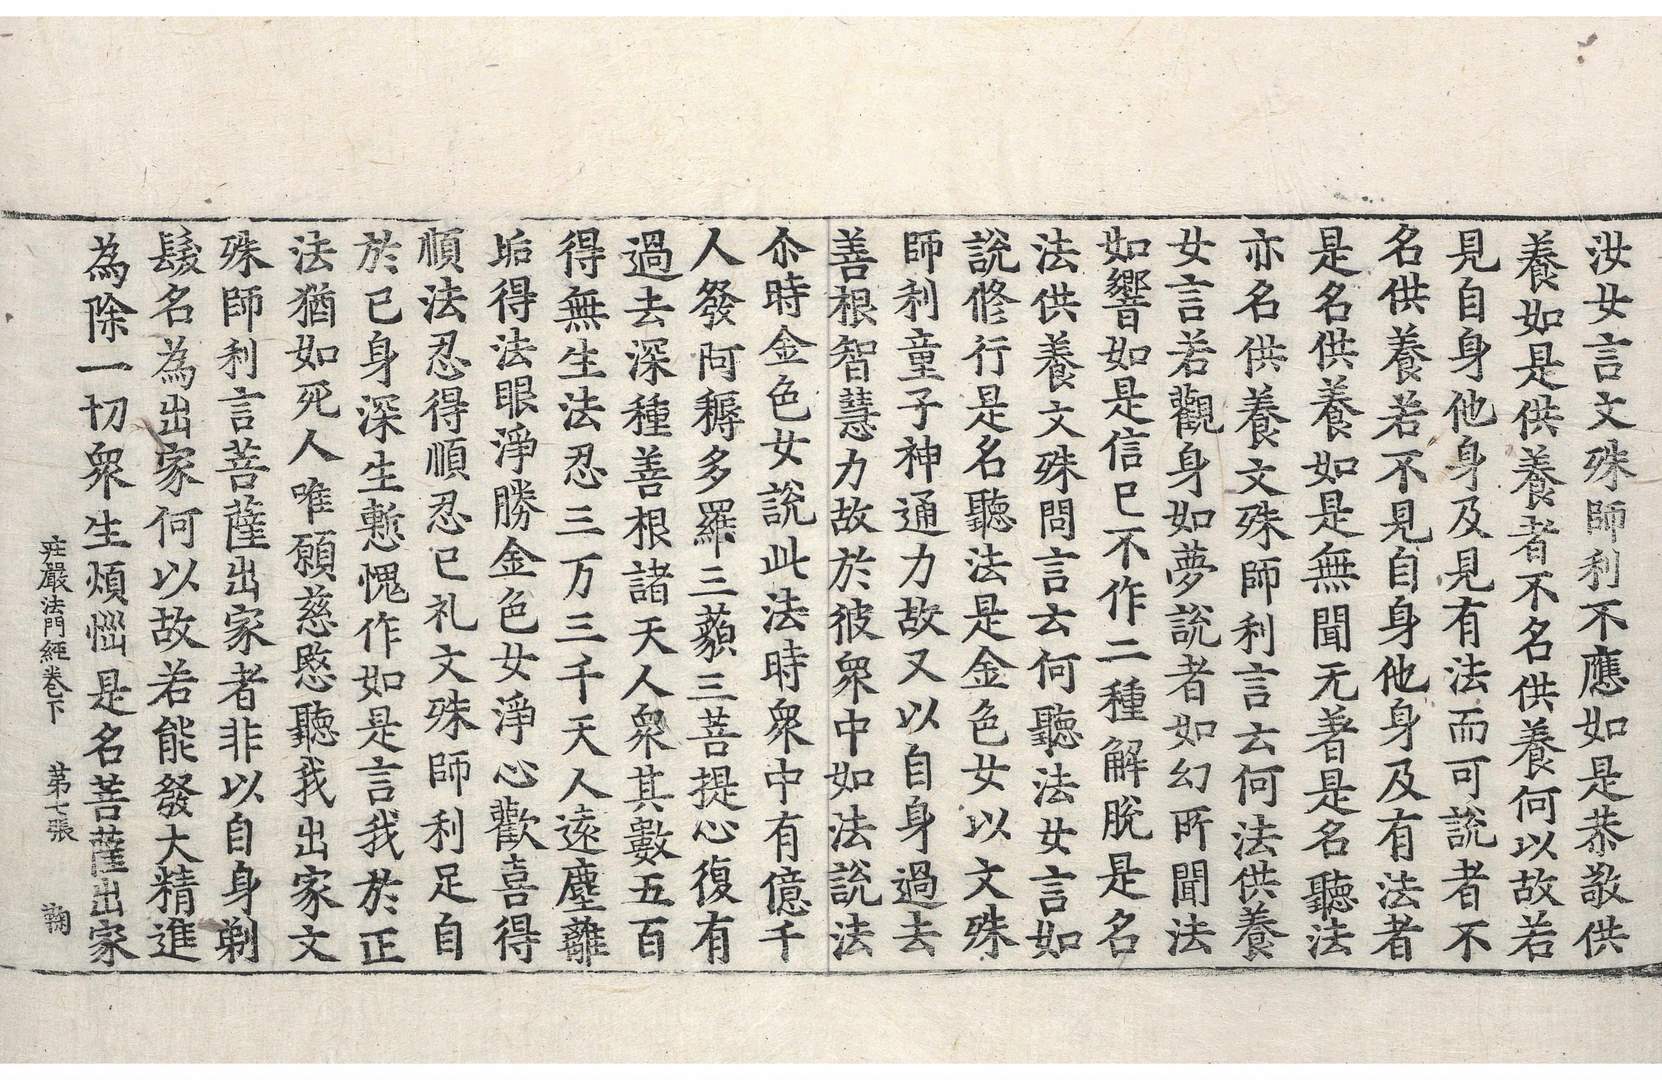 汝女言文殊師利不應如是恭敬供
養如是供養者不名供養何以故若
見自身他身及見有法而可說者不
名供養若不見自身他身及有法者
是名供養如是無聞无著是名聽法
亦名供養文殊師利言云何法供養
女言若觀身如夢說者如幻所聞法
如響如是信已不作二種解脫是名
法供養文殊問言云何聽法女言如
說修行是名聽法是金色女以文殊
師利童子神通力故又以自身過去
善根智慧力故於彼衆中如法說法
尒時金色女說此法時衆中有億千
人發阿耨多羅三藐三菩提心復有
過去深種善根諸天人衆其數五百
得無生法忍三万三千天人遠塵離
垢得法眼淨勝金色女淨心歡喜得
順法忍得順忍已礼文殊師利足自
於已身深生慙愧作如是言我於正
法猶如死人唯願慈愍聽我出家文
殊師利言菩薩出家者非以自身剃
髮名為出家何以故若能發大精進
為除一切衆生煩惱是名菩薩出家
莊嚴法門經卷下　第七張　鞠